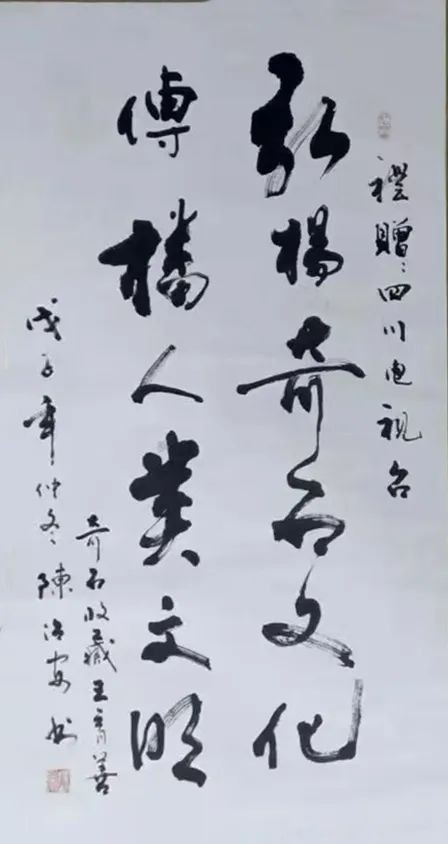 禮贈：四川电視台
弘揚奇石文化
傳播人类文明
奇石收藏王育善
戊子年仲冬 陳治安书